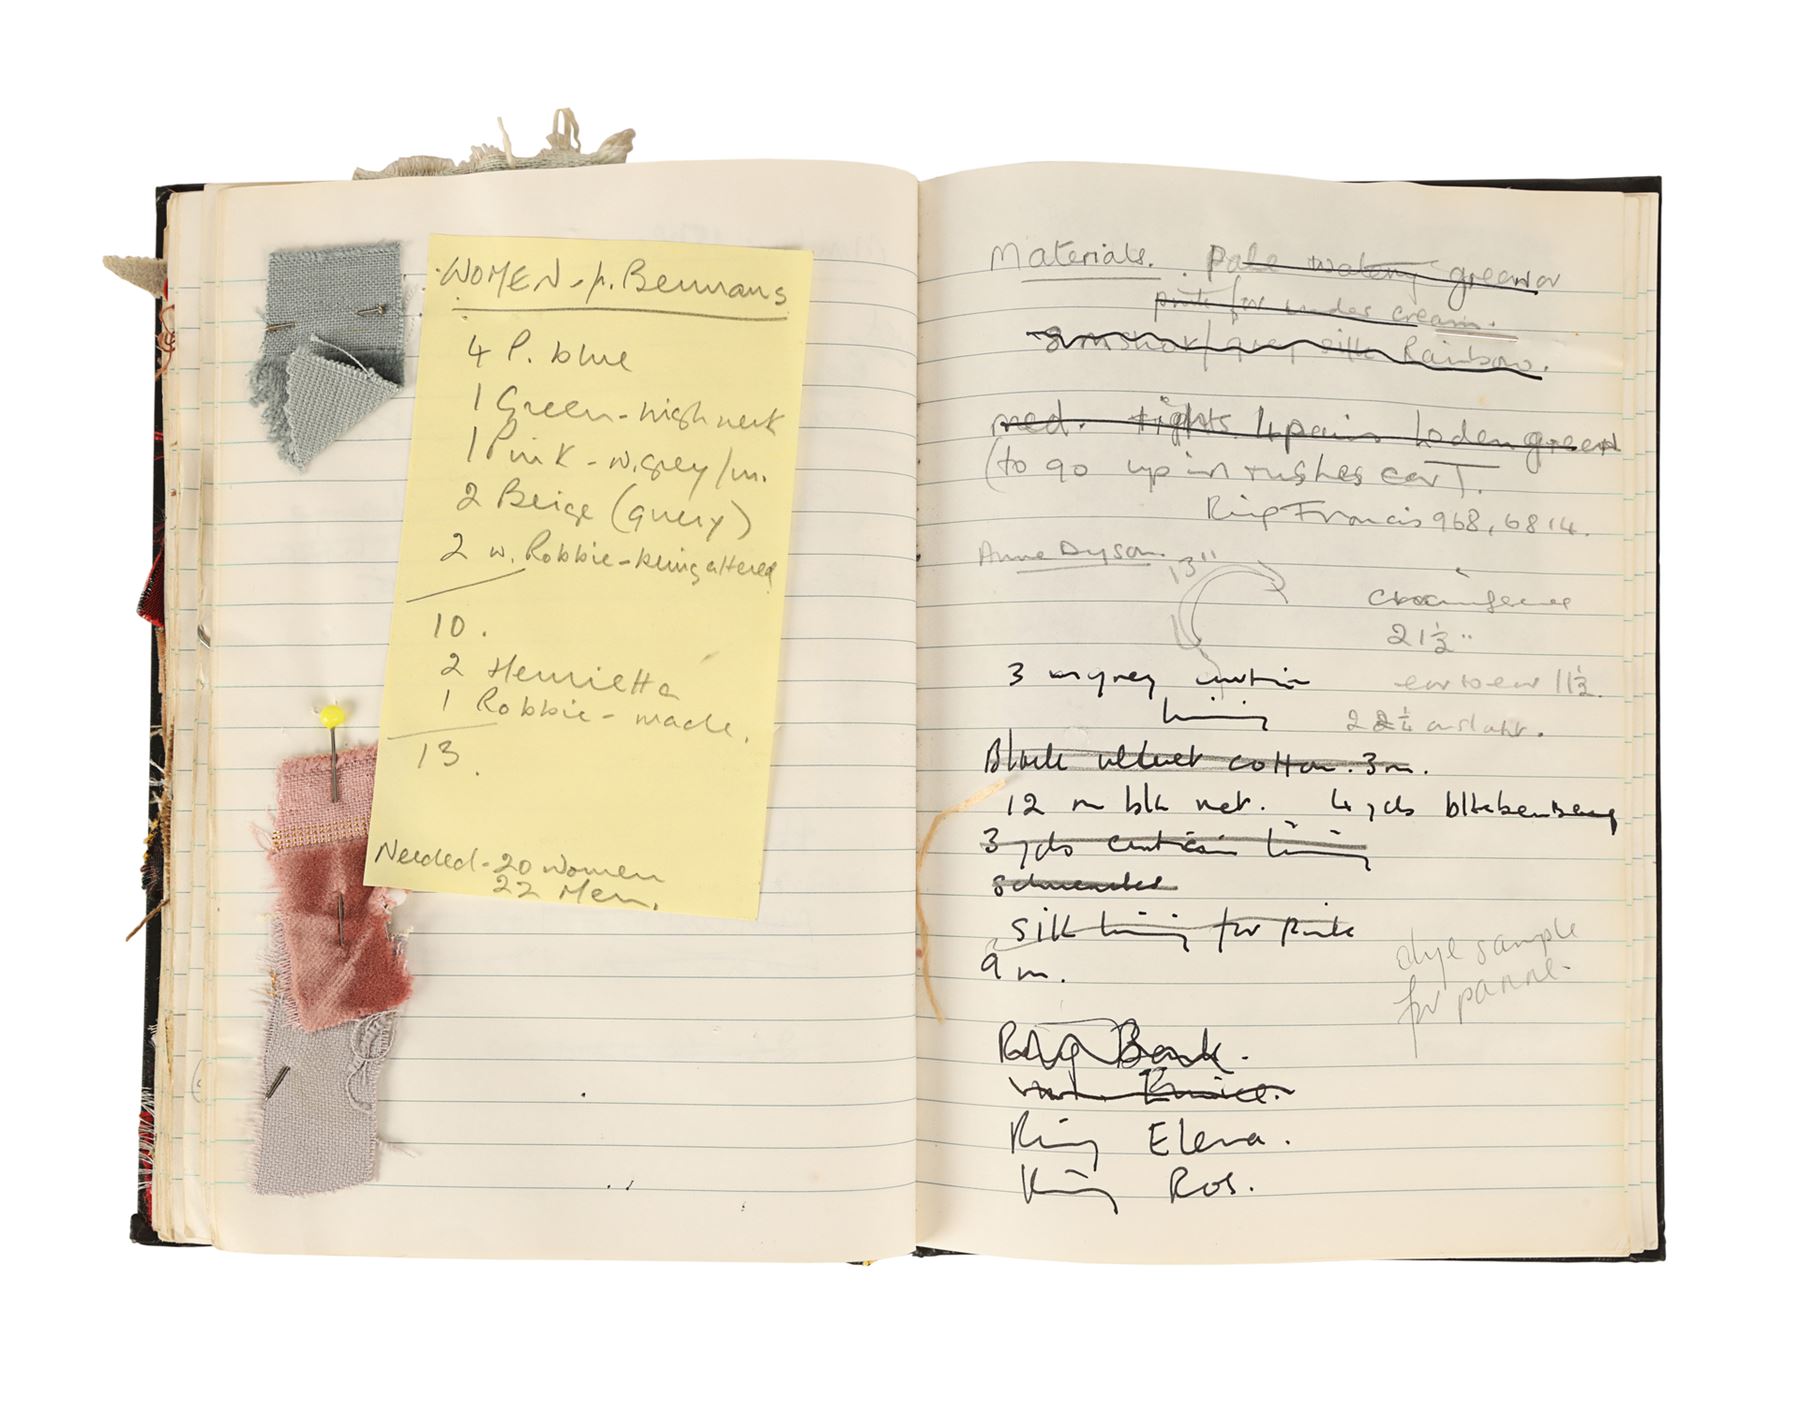 WOMEN - p. Bermans
4 P. blue
1 Green - high neck
1 Pink - w. grey/
2 Beige (query)
2 w. Robbie - being altered
10.
2 Henrietta
1 Robbie - made.
13.
Needed - 20 women
22 Men.
Materials. Pale watery green or
pink for under cream.
grey silk Rainbow.
red. tights 4 pairs Loden green
(to go up in rushes car T.
Ring Francis 968, 6814.
Anne Dyson. 13"
21½"
3 m grey
ear to ear 11½
lining
22¼
Black velvet cotton. 3m.
12 m blk net. 4 yds blk
3 yds lining
silk lining for Pink
9 m.
dye sample
for panne.
Ring Bank.
Ring Elena.
Ring Ros.